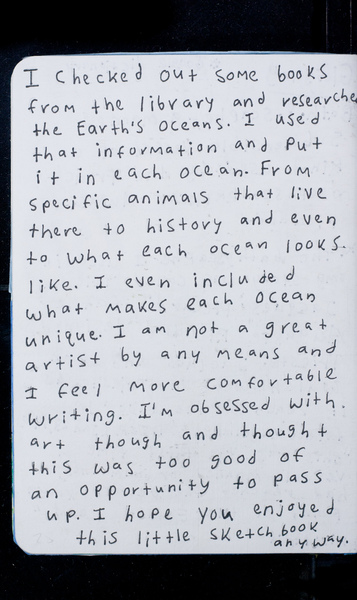 I checked out some books
from the library and researche
the Earth's oceans. I used
that information and put
it in each ocean. From
specific animals that live
there to history and even
to what each ocean looks.
like. I even included
what makes each ocean
unique. I am not a great
artist by any means and
I feel more comfortable
writing. I'm obsessed with.
art though and thought
this was too good of
an opportunity to pass
up. I hope you enjoyed
this little sketchbook
anyway.